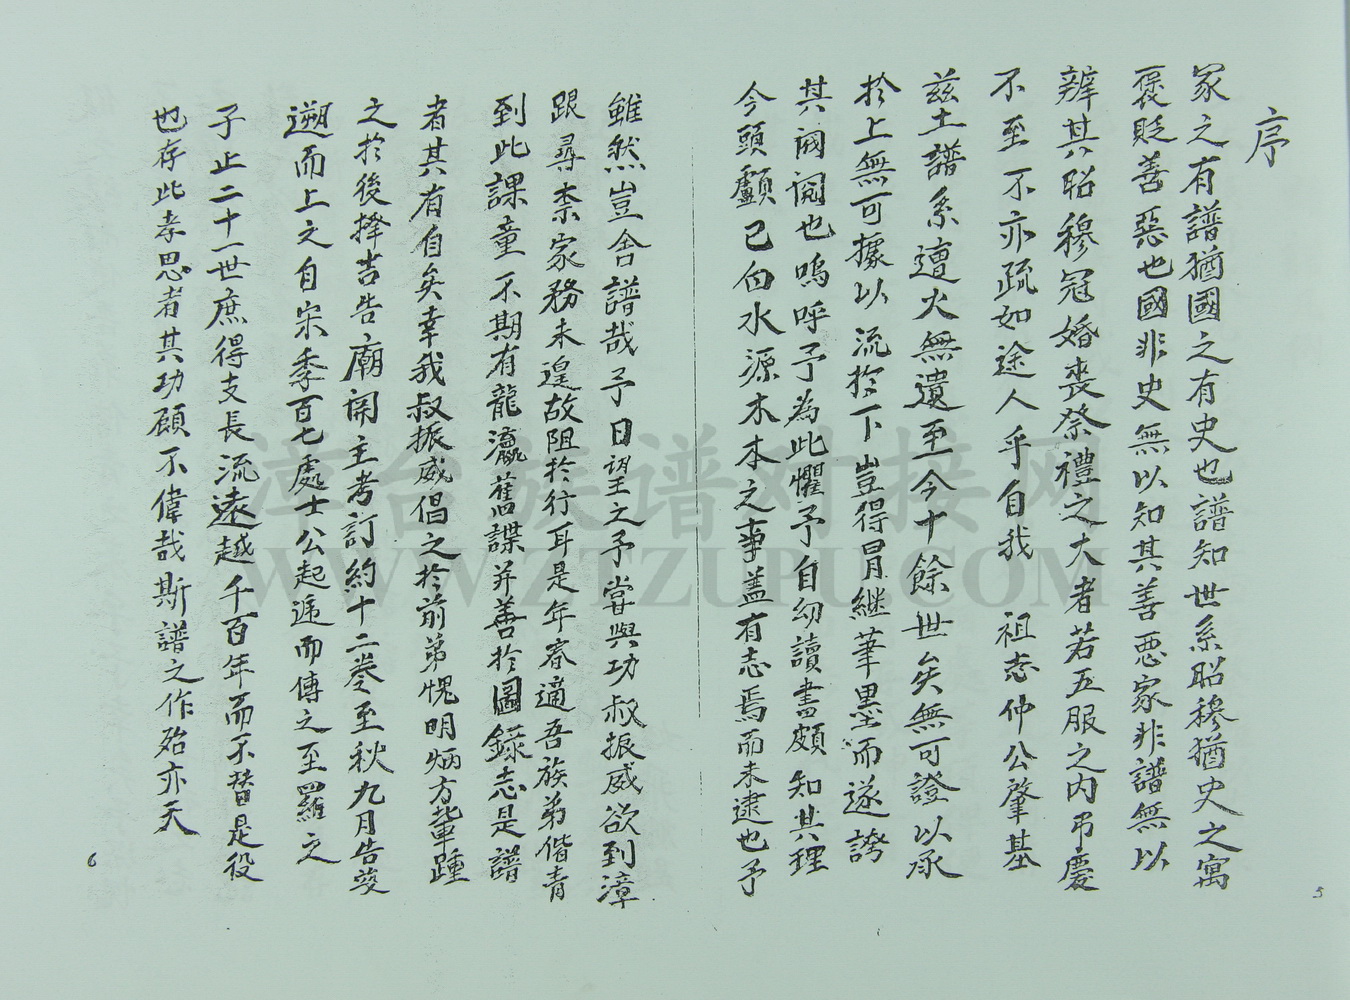 序
家之有譜猶國之有史也譜知世系昭穆猶史之寓
褒貶善惡也國非史無以知其善惡家非譜無以
辨其昭穆冠婚喪祭禮之大者若五服之內弔慶
不至不亦疏如途人乎自我 祖志仲公肇基
茲土譜系遭火無遺至今十餘世矣無可證以承
於上無可據以流於下豈得冒繼筆墨而遂誇
其閥閱也嗚呼予為此懼予自幼讀書頗知其理
今頭顱已白水源木本之事蓋有志焉而未逮也予
雖然豈舍譜哉予日望之予嘗與功叔振威欲到漳
跟尋柰家務未遑故阻於行耳是年春適吾族弟偕青
到此課童不期有龍瀛舊譜并善於圖錄志是譜
者其有自矣幸我叔振威倡之於前弟愧明炳方輩踵
之於後擇吉告廟開主考訂約十二卷至秋九月告竣
遡而上之自宋季百七處士公起遞而傳之至羅之
子止二十一世庶得支長流遠越千百年而不替是役
也存此孝思者其功顧不偉哉斯譜之作殆亦天
5
6
漳台族谱对接网
WWW.ZTZUPU.COM